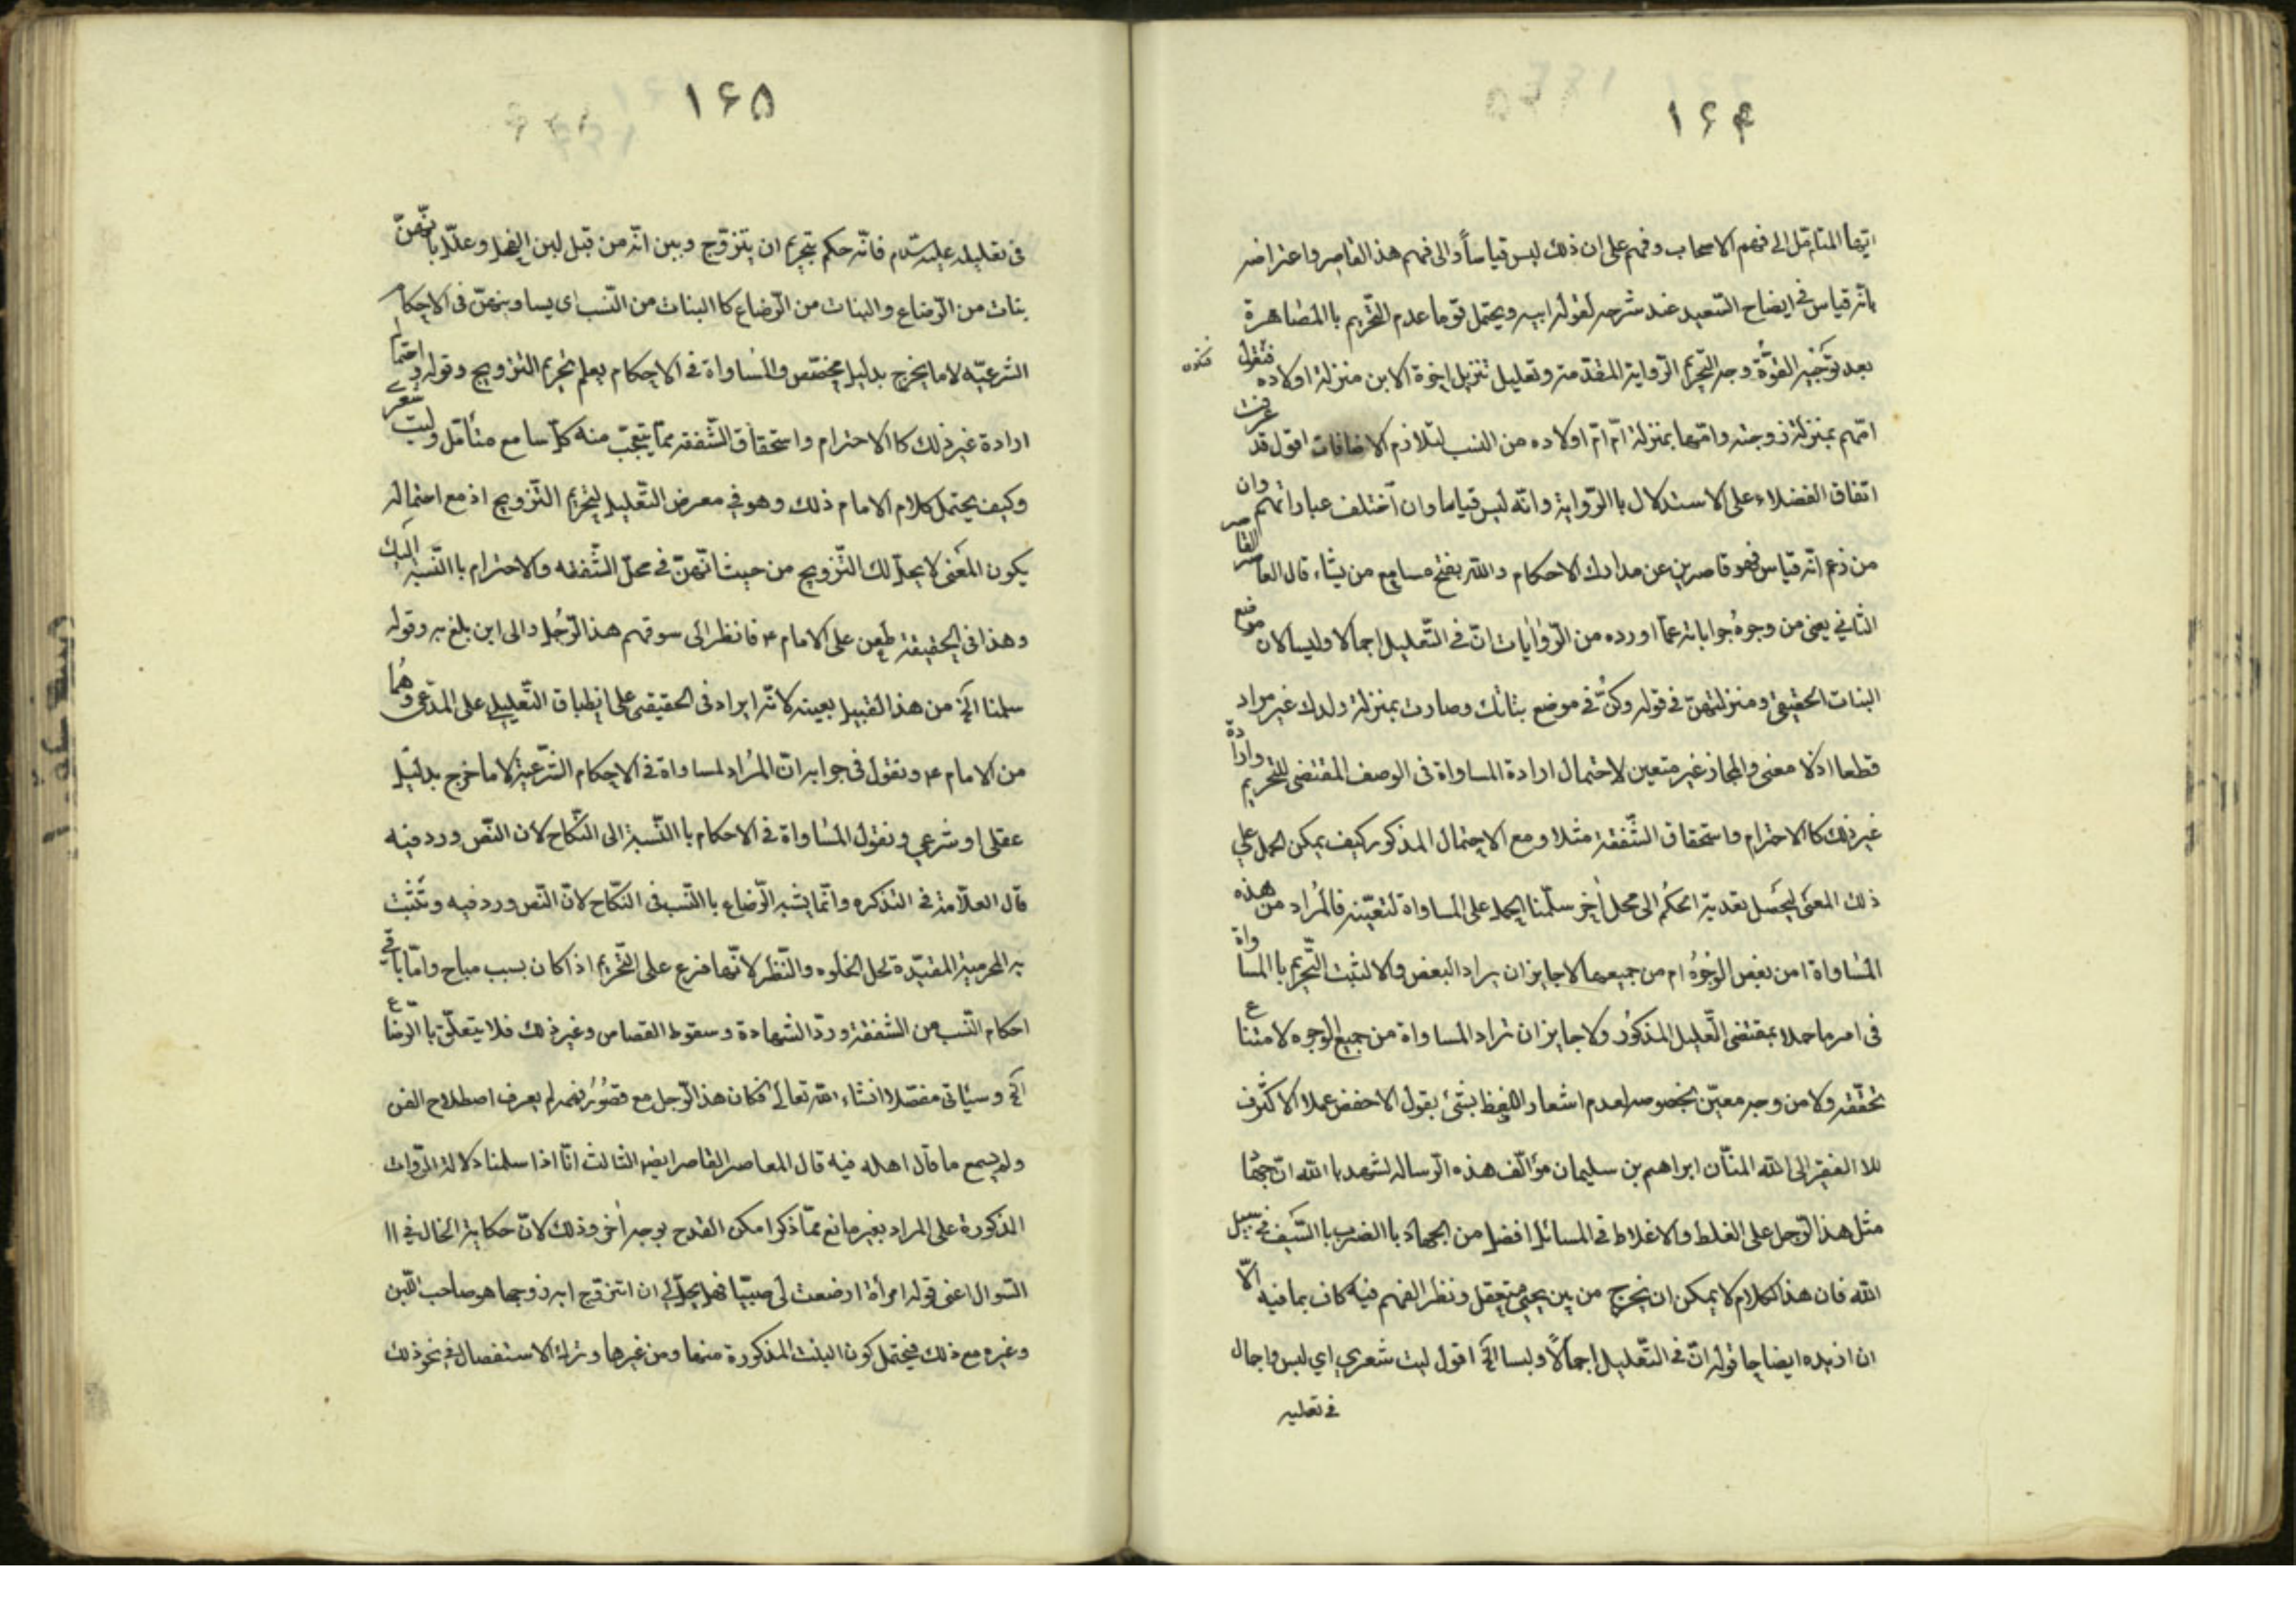 ۱۶۴
ايها المتامل الى فهم الاصحاب وفهم على ان ذلك ليس قياساً والى فهم هذا القاصر واعتراضه
بانه قياس في ايضاح السعيد عند شرحه لقول ابيه ويحتمل قويا عدم التحريم باالمصاهرة
بعد توجيه القوة وجه التحريم الرواية المتقدمة وتعليل تنزيل اخوة الابن منزلة اولاده فنقول فتكون
امهم بمنزلة زوجته وامها بمنزلة ام ام اولاده من النسب لتلازم الاضافات اقول قد عرفت
اتفاق الفضلاء على الاستدلال باالرواية وانه ليس قياسا وان اختلف عباراتهم وان
من زعم انه قياس فهو قاصر عن مدارك الاحكام والله يفتح مسامع من يشاء قال المعاصر القاصر
الثاني يعني من وجوه جواباته عما اورده من الروايات ان في التعليل اجمالا وليسا لان موضع
البنات الحقيقي ومنزلتهن في قوله وكن في موضع بناتك وصارت بمنزلة ولدك غير مراد
قطعا اذ لا معنى والمجاز غير متعين لاحتمال ارادة المساواة في الوصف المقتضى للتحريم وارادة
غير ذلك كاالاحترام واستحقاق الشفقة مثلا ومع الاحتمال المذكور كيف يمكن الحمل على
ذلك المعنى ليحصل تعدية الحكم الى محل اخر سلمنا الحمل على المساواة لتعينه فالمراد من هذه
المساواة امن بعض الوجوه ام من جميعها لا جايز ان يراد البعض والا لثبت التحريم باالمساواة
في امر ما حملا بمقتضى التعليل المذكور ولا جايز ان تراد المساواة من جميع الوجوه لامتناع
تحققه ولا من وجه معين بخصوصه لعدم اشعار اللفظ بشئ يقول الاحفض عملا الاكثرف
للا الفقير الى الله المنان ابراهيم بن سليمان مؤالف هذه الرساله لشهد باالله ان جبها
مثل هذا الرجل على الغلط والاغلاط في المسائل افضل من الجهاد باالضرب باالسيف في سبيل
الله فان هذا الكلام لا يمكن ان يخرج من بين يحيى متعقل ونظر الفهم فيه كاف بما فيه الا
ان ازيده ايضاحا قوله ان في التعليل اجمالاً وليسا الخ اقول ليت شعري اي لبس واجمال
في تعليله
۱۶۵
في تعليله عليه السلام فانه حكم بتحريم ان يتزوج وبين انه من قبل لبن الفحل وعلله بانهن
بنات من الرضاع والبنات من الرضاع كا البنات من النسب اى يساوينهن في الاحكام
الشرعيه لا ما يخرج بدليل مختص والمساواة في الاحكام يعلم تحريم التزويج وقوله واحتمال
ارادة غير ذلك كاالاحترام واستحقاق الشفقه مما يتعجب منه كل سامع متأمل وليت شعري
وكيف يحتمل كلام الامام ذلك وهو في معرض التعليل لتحريم التزويج اذ مع احتماله
يكون المعنى لا يحل لك التزويج من حيث انهن في محل الشفقه والاحترام باالنسبه اليك
وهذا في الحقيقة طعن على الامام ع فانظر الى سوفهم هذا الرجل والى اين بلغ به وقوله
سلمنا الخ من هذا القبيل بعينه لانه ايراد في الحقيقة على انطباق التعليل على المدعى وهما
من الامام ع ونقول في جوابه ان المراد لمساواة في الاحكام الشرعية لا ما خرج بدليل
عقلى او شرعي ونقول المساواة في الاحكام باالنسبة الى النكاح لان النص ورد فيه
قال العلامة في التذكره وانما يشبه الرضاع باالنسب في النكاح لان النص ورد فيه وتثبت
به المحرمية المقيدة لحل الخلوه والنظر لانها فرع على التحريم اذا كان بسبب مباح واما باقي
احكام النسب من الشفقة ورد الشهادة وسقوط القصاص وغير ذلك فلا يتعلق باالرضاع
الخ وسيأتى مفصلا انشاء الله تعالى فكان هذا الرجل مع قصور فهمه لم يعرف اصطلاح الفن
ولم يسمع ما قال اهله فيه قال المعاصر القاصر ايضا الثالث انا اذا سلمنا دلالة الروات
المذكورة على المراد بغير مانع مما ذكر امكن القدح بوجه اخر وذلك لان حكاية الحال في اا
السوال اعنى قوله امرأة ارضعت لى صبيا فهل يحل لى ان اتزوج ابنة زوجها هو صاحب اللبن
وغيره مع ذلك فيحتمل كون البنت المذكورة منها ومن غيرها وترك الاستفصال في نحو ذلك